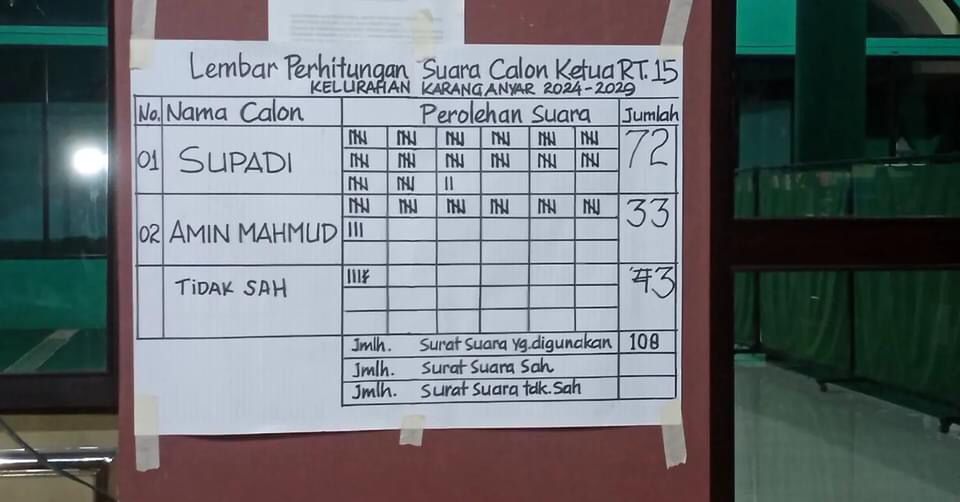 Lembar Perhitungan Suara Calon Ketua RT. 15
KELURAHAN KARANGANYAR 2024-2029
No. Nama Calon Perolehan Suara Jumlah
01 SUPADI 72
02 AMIN MAHMUD 33
TIDAK SAH 3
Jmlh. Surat Suara yg.digunakan 108
Jmlh. Surat Suara Sah
Jmlh. Surat Suara tdk.Sah